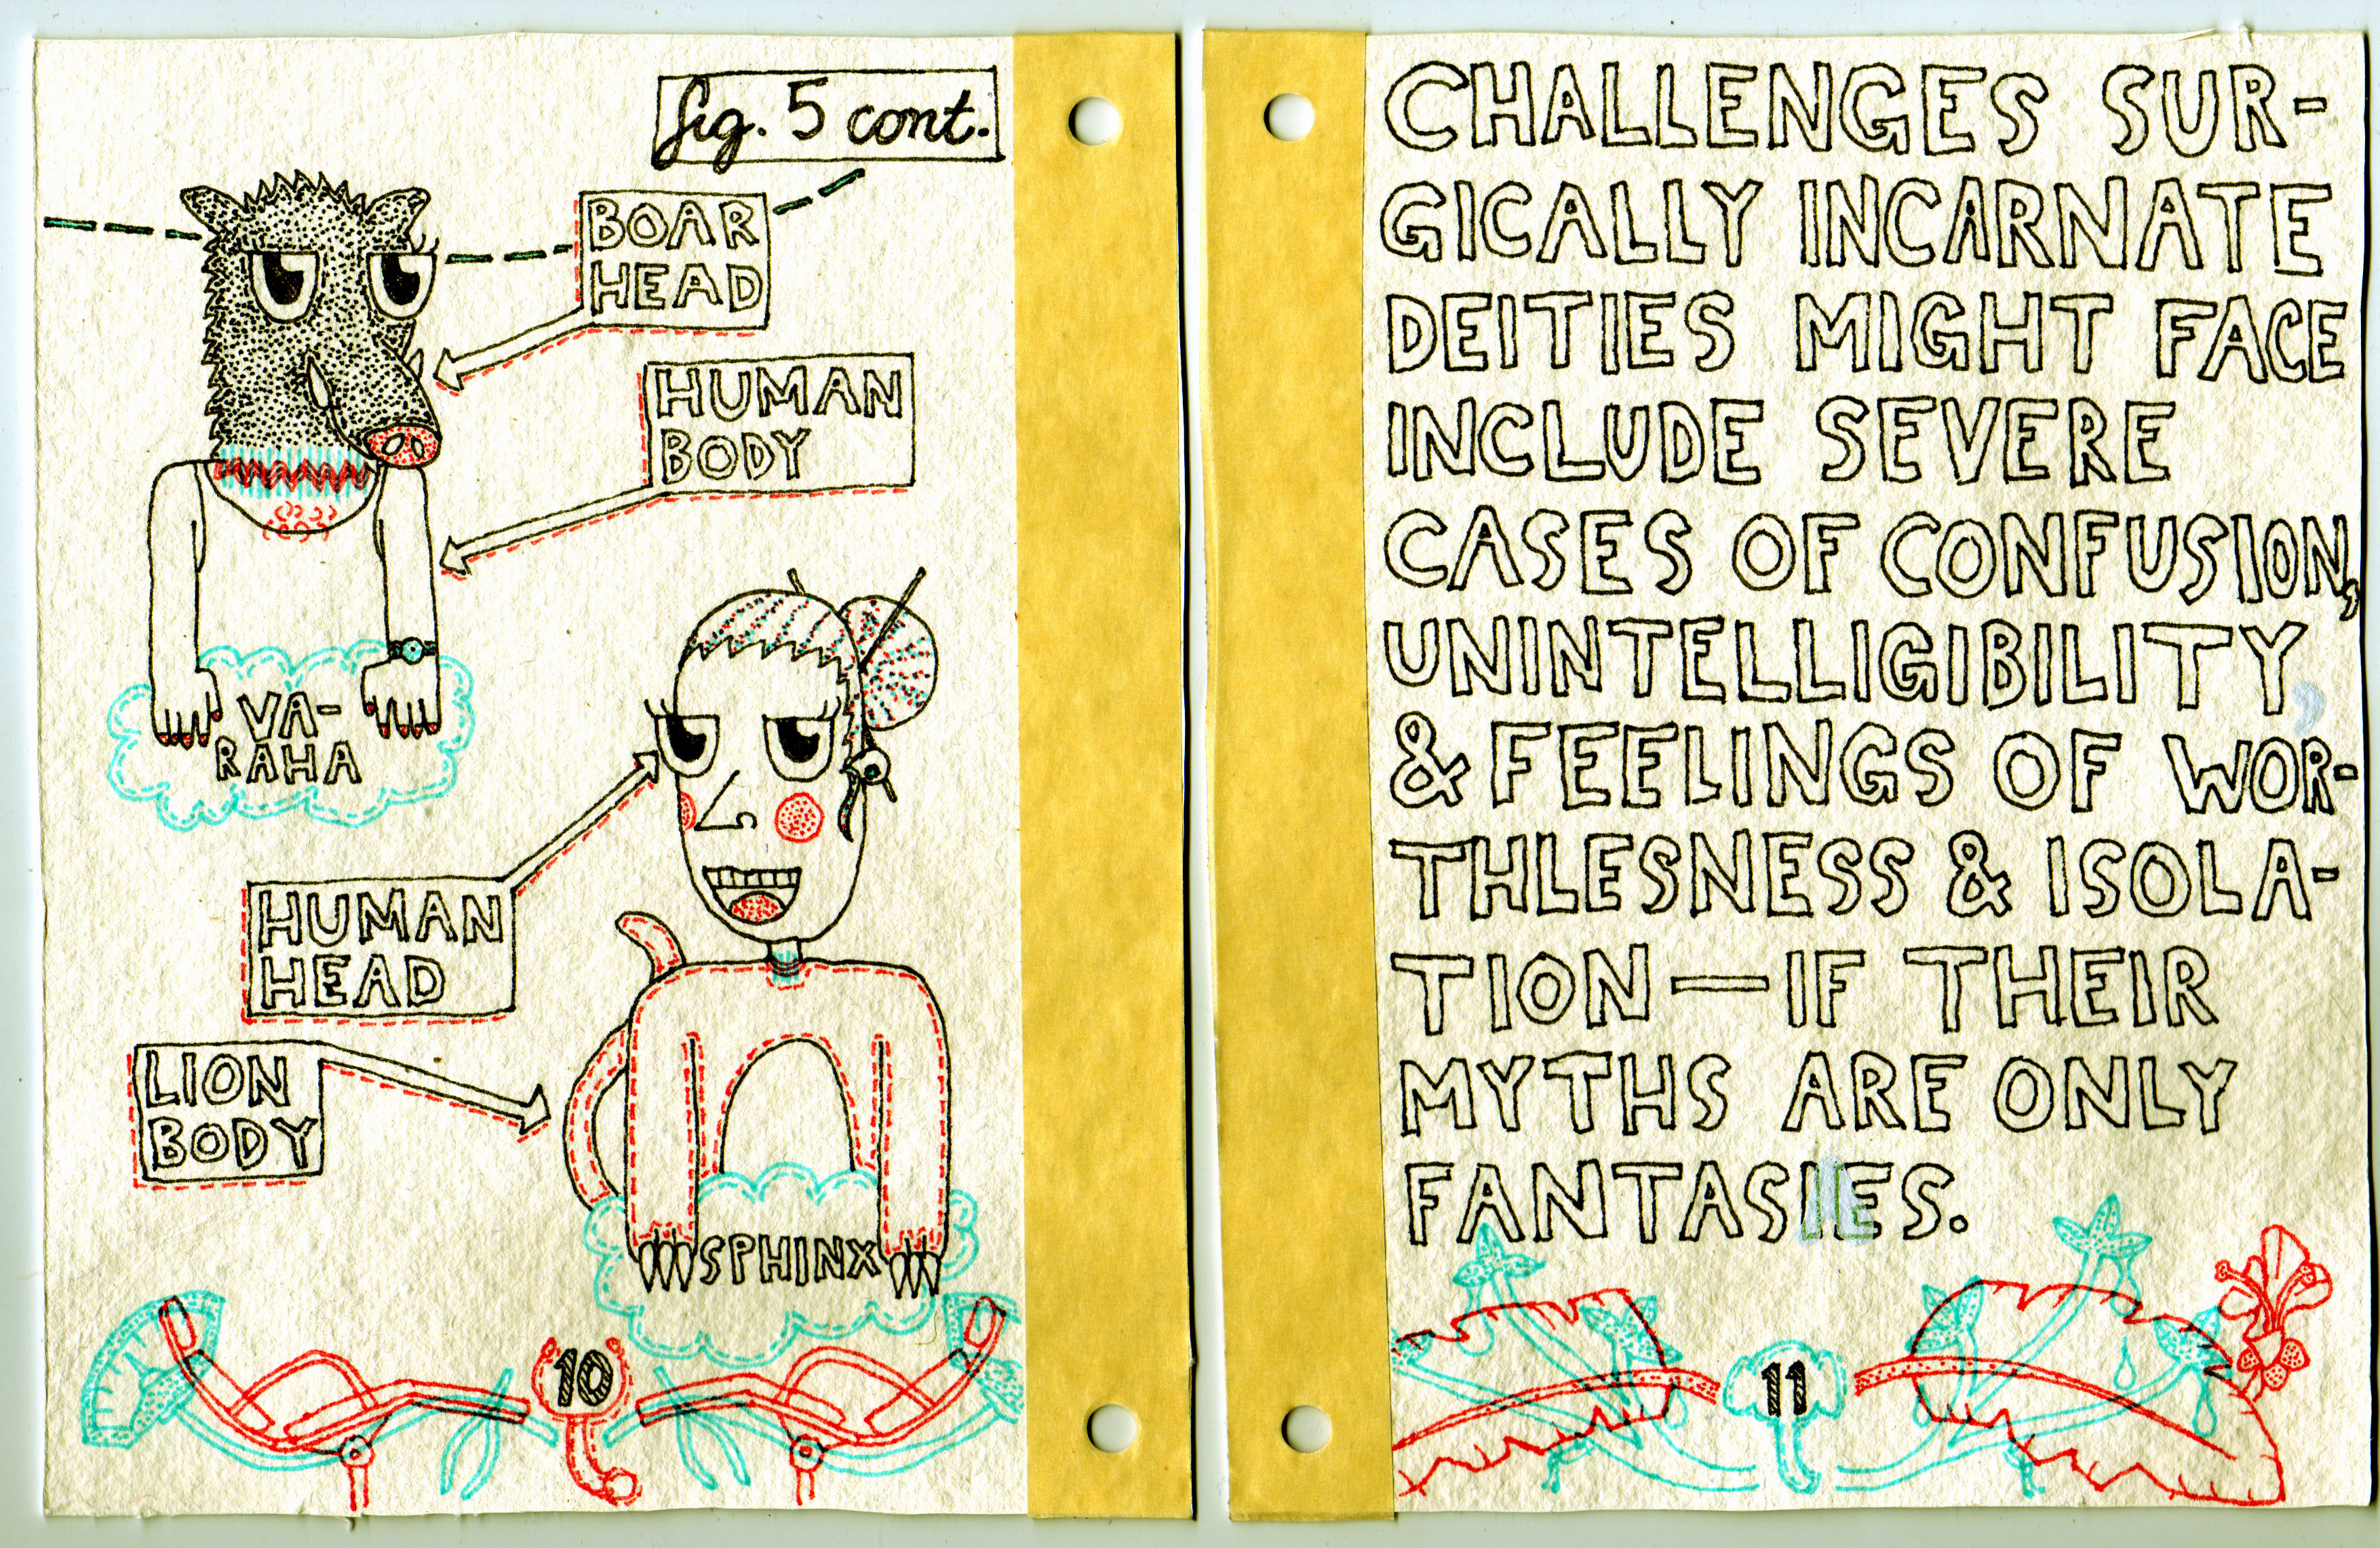 fig. 5 cont.
BOAR
HEAD
HUMAN
BODY
VA-
RAHA
HUMAN
HEAD
LION
BODY
SPHINX
10
CHALLENGES SUR-
GICALLY INCARNATE
DEITIES MIGHT FACE
INCLUDE SEVERE
CASES OF CONFUSION,
UNINTELLIGIBILITY,
& FEELINGS OF WOR-
THLESNESS & ISOLA-
TION—IF THEIR
MYTHS ARE ONLY
FANTASIES.
11